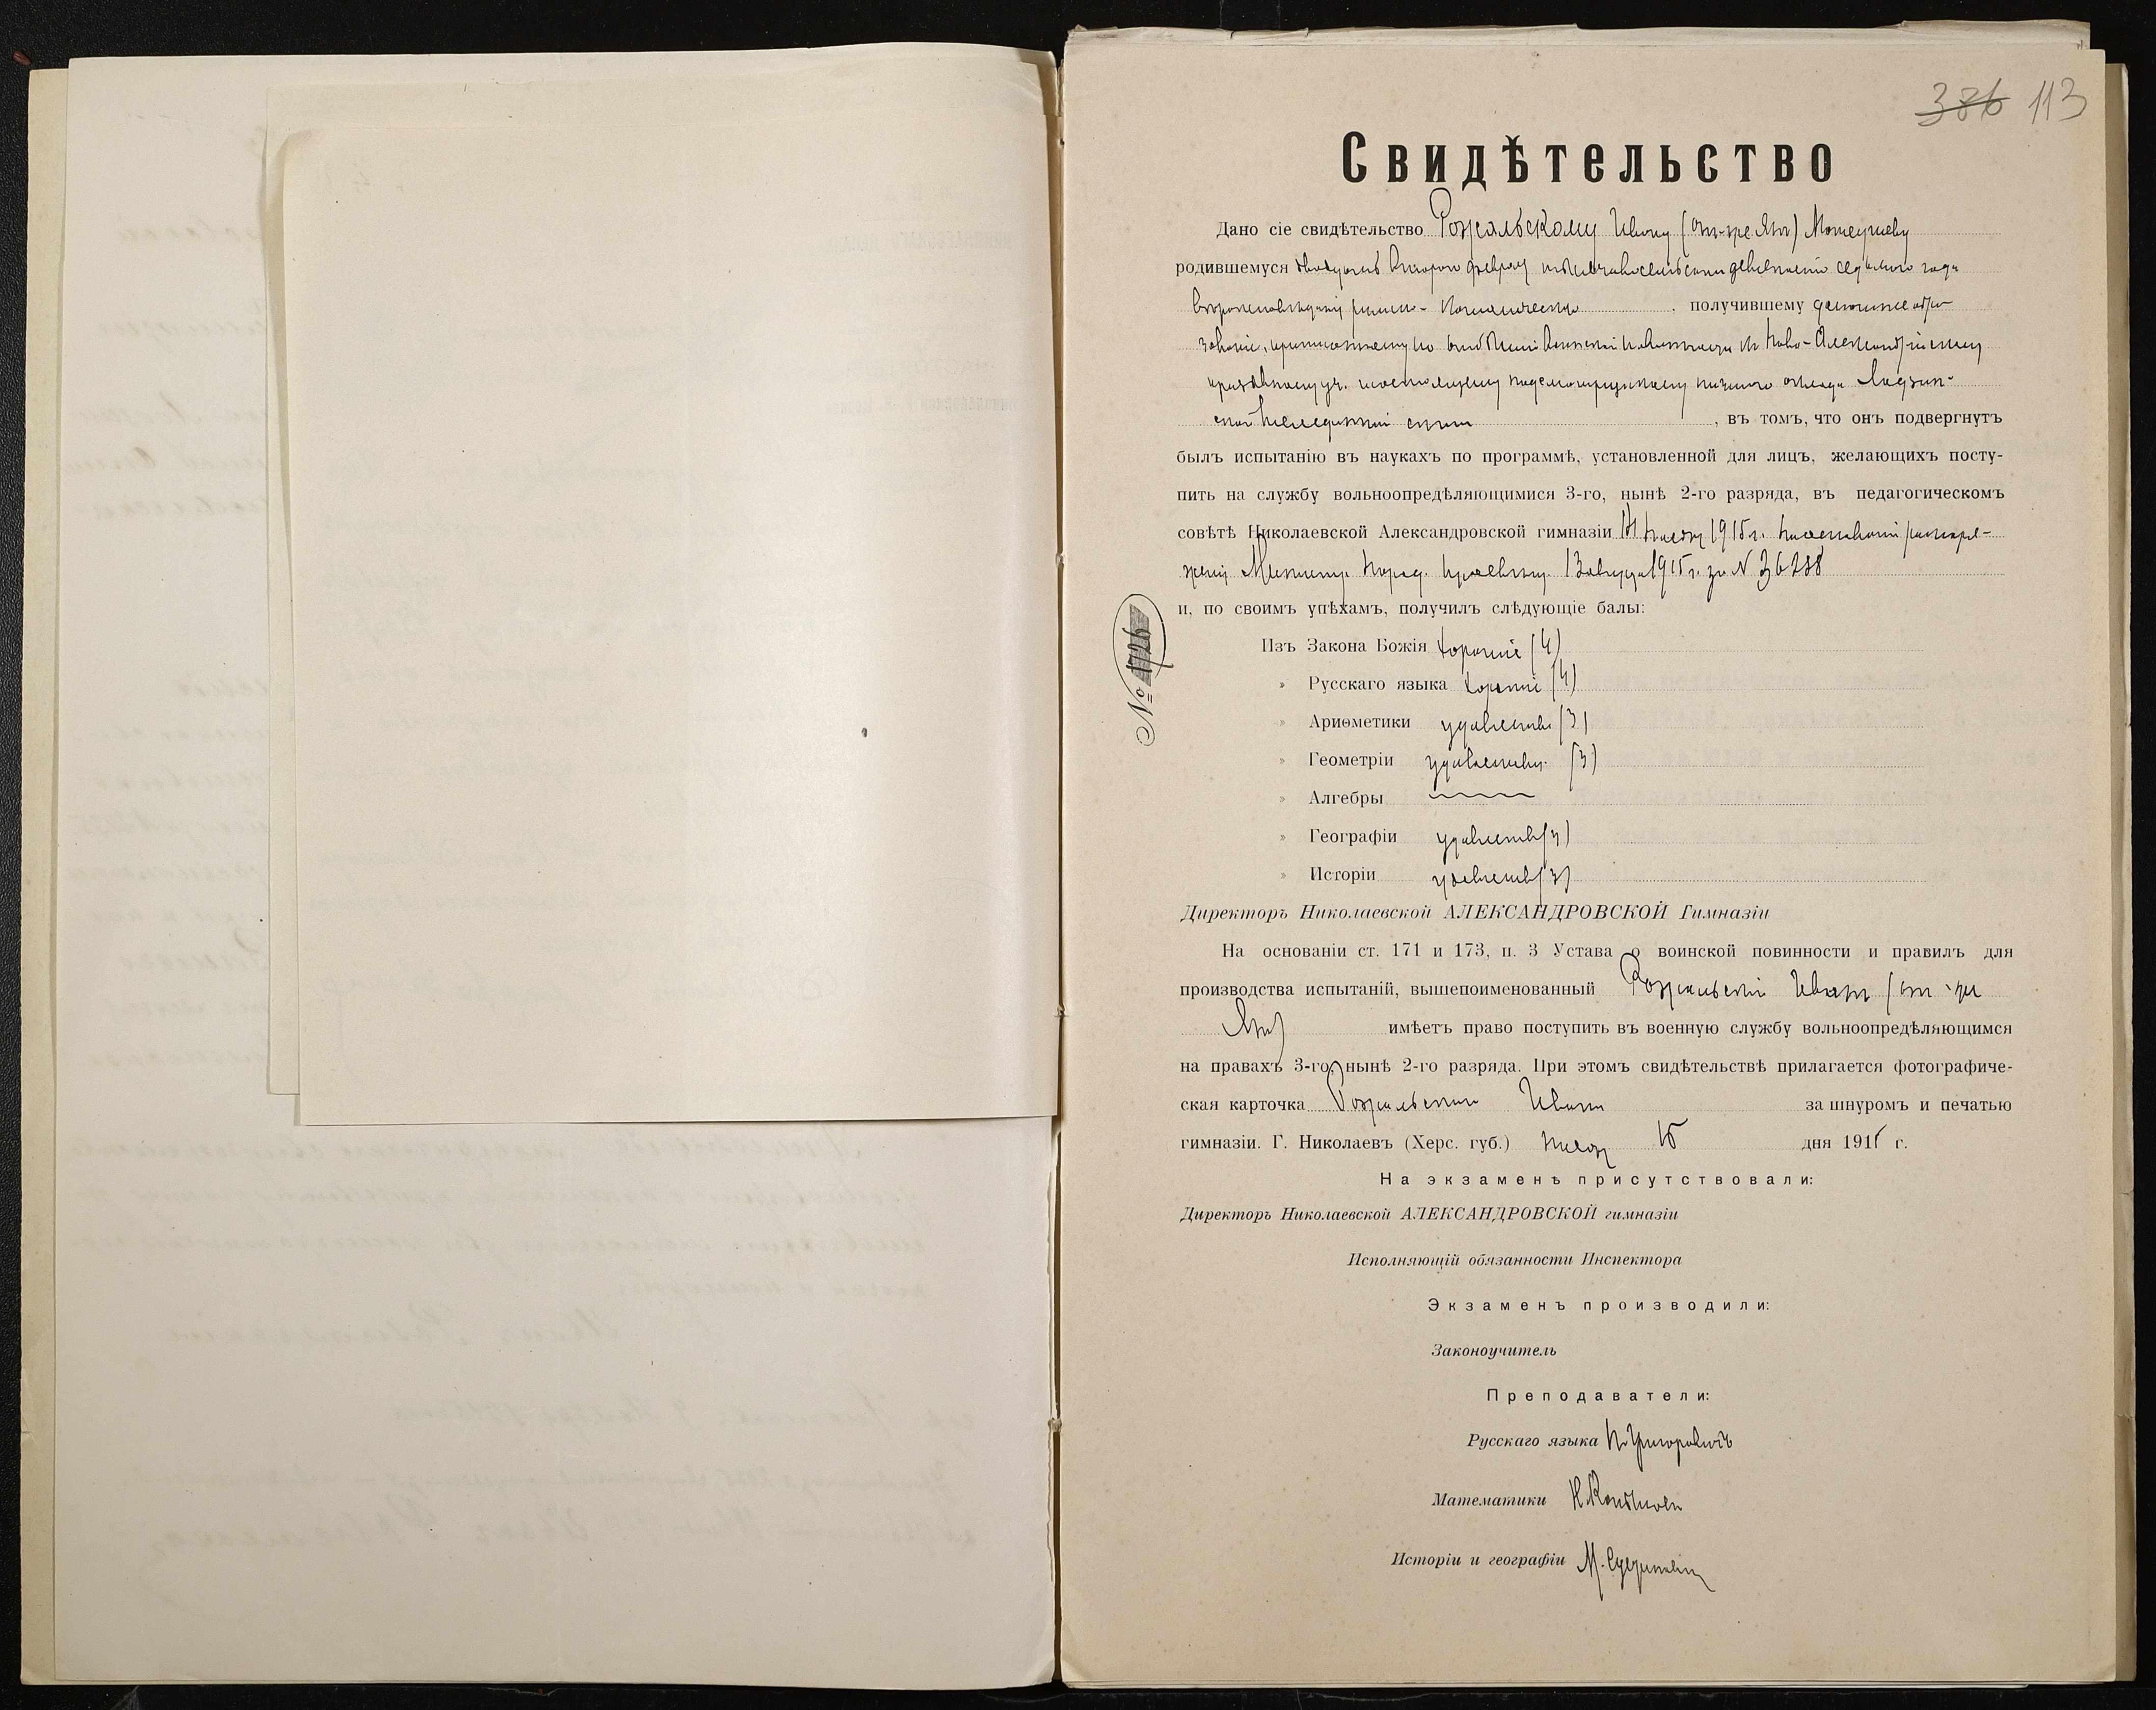 386 113
Свидѣтельство
Дано сіе свидѣтельство Рожальскому Ивану (онъ-же Янъ) Матеушеву
родившемуся двадцать второго февраля девяносто седьмого года
вѣроисповѣданія римско-католическаго, получившему домашнее обра-
зованіе, приписанному по отбыванію воинской повинности къ Ново-Александрійскому
призывному уч.
, въ томъ, что онъ подвергнутъ
былъ испытанію въ наукахъ по программѣ, установленной для лицъ, желающихъ посту-
пить на службу вольноопредѣляющимися 3-го, нынѣ 2-го разряда, въ педагогическомъ
совѣтѣ Николаевской Александровской гимназіи 1915 г. на основаніи распоря-
женія Министр. Народ. Просвѣщ. 13 августа 1915 г. за № 36288
и, по своимъ упѣхамъ, получилъ слѣдующіе балы:
№ 1726
Изъ Закона Божія хорошіе (4)
» Русскаго языка хорошіе (4)
» Ариѳметики удовлетв. (3)
» Геометріи удовлетв. (3)
» Алгебры
» Географіи удовлетв (3)
» Исторіи удовлетв (3)
Директоръ Николаевской АЛЕКСАНДРОВСКОЙ Гимназіи
На основаніи ст. 171 и 173, п. 3 Устава о воинской повинности и правилъ для
производства испытаній, вышепоименованный Рожальскій Иванъ (онъ-же
Янъ) имѣетъ право поступить въ военную службу вольноопредѣляющимся
на правахъ 3-го, нынѣ 2-го разряда. При этомъ свидѣтельствѣ прилагается фотографиче-
ская карточка Рожальскаго Ивана за шнуромъ и печатью
гимназіи. Г. Николаевъ (Херс. губ.) ноября 15 дня 1915 г.
На экзаменѣ присутствовали:
Директоръ Николаевской АЛЕКСАНДРОВСКОЙ гимназіи
Исполняющій обязанности Инспектора
Экзаменъ производили:
Законоучитель
Преподаватели:
Русскаго языка Григоровичъ
Математики Н.
Исторіи и географіи М.